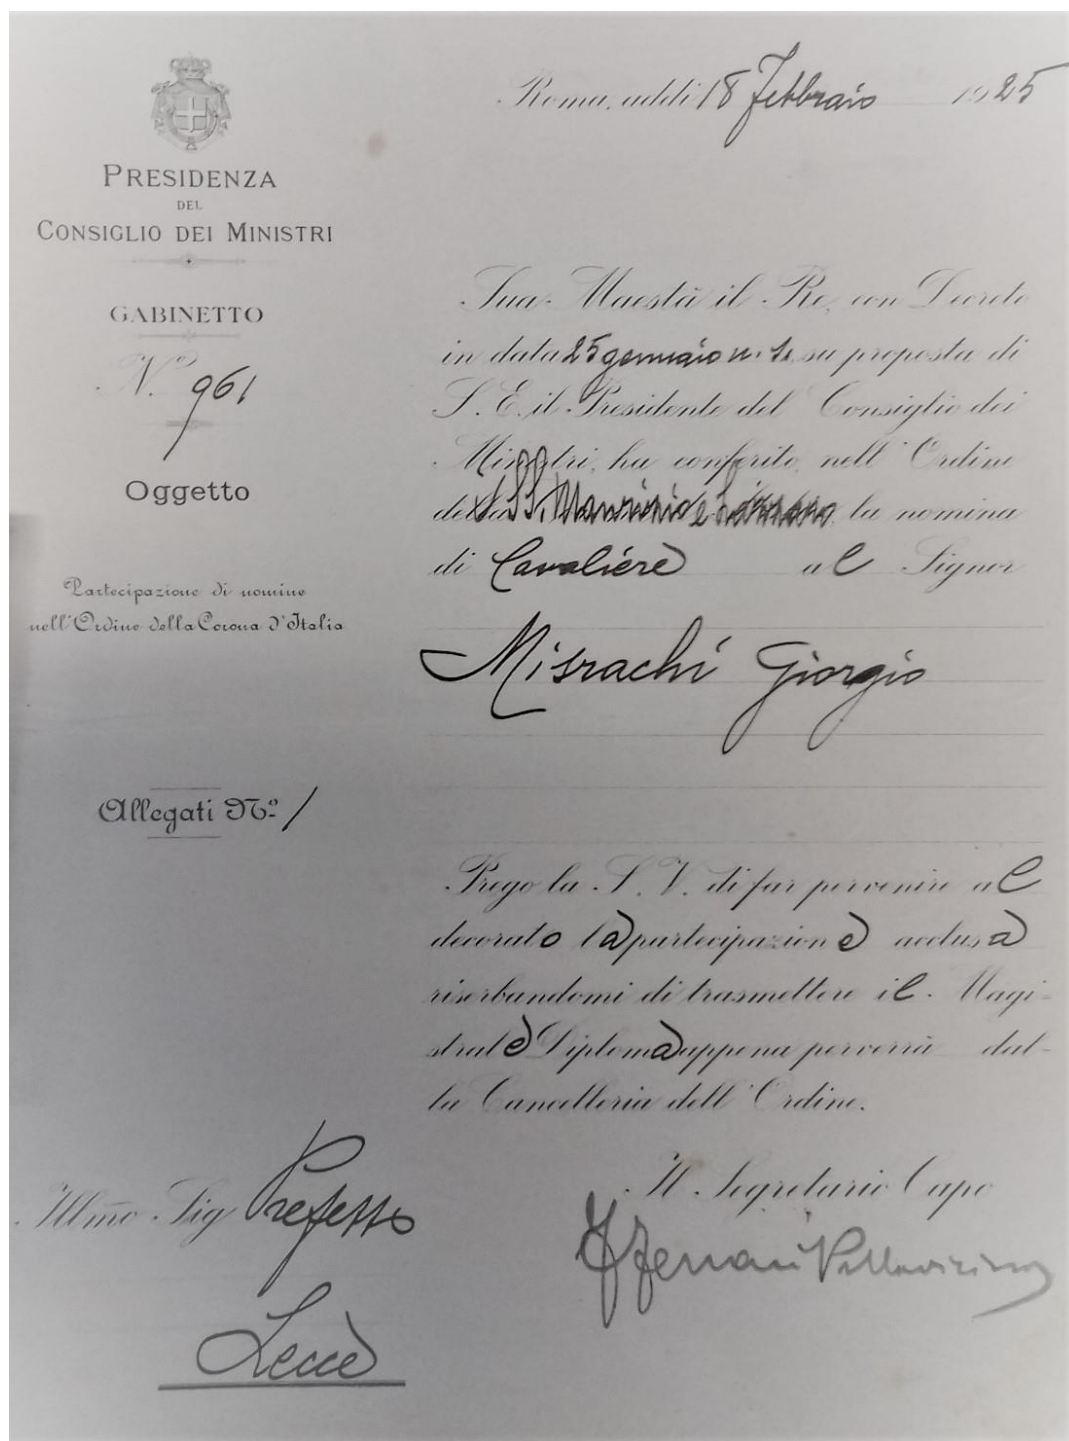 Roma, addì 18 Febbraio 1925
PRESIDENZA
DEL
CONSIGLIO DEI MINISTRI
GABINETTO
N. 961
Oggetto
Partecipazione di nomine
nell'Ordine della Corona d'Italia
Allegati Nº 1
Sua Maestà il Re, con Decreto
in data 25 gennaio u. s. su proposta di
S. E. il Presidente del Consiglio dei
Ministri, ha conferito, nell'Ordine
dei SS. Maurizio e Lazzaro la nomina
di Cavaliere al Signor
Misrachi Giorgio
Prego la S. V. di far pervenire al
decorato la partecipazione acclusa
riserbandomi di trasmettere il Magi-
strale Diploma appena perverrà dal-
la Cancelleria dell'Ordine.
Il Segretario Capo
Illmo Sig Prefetto
Lecce